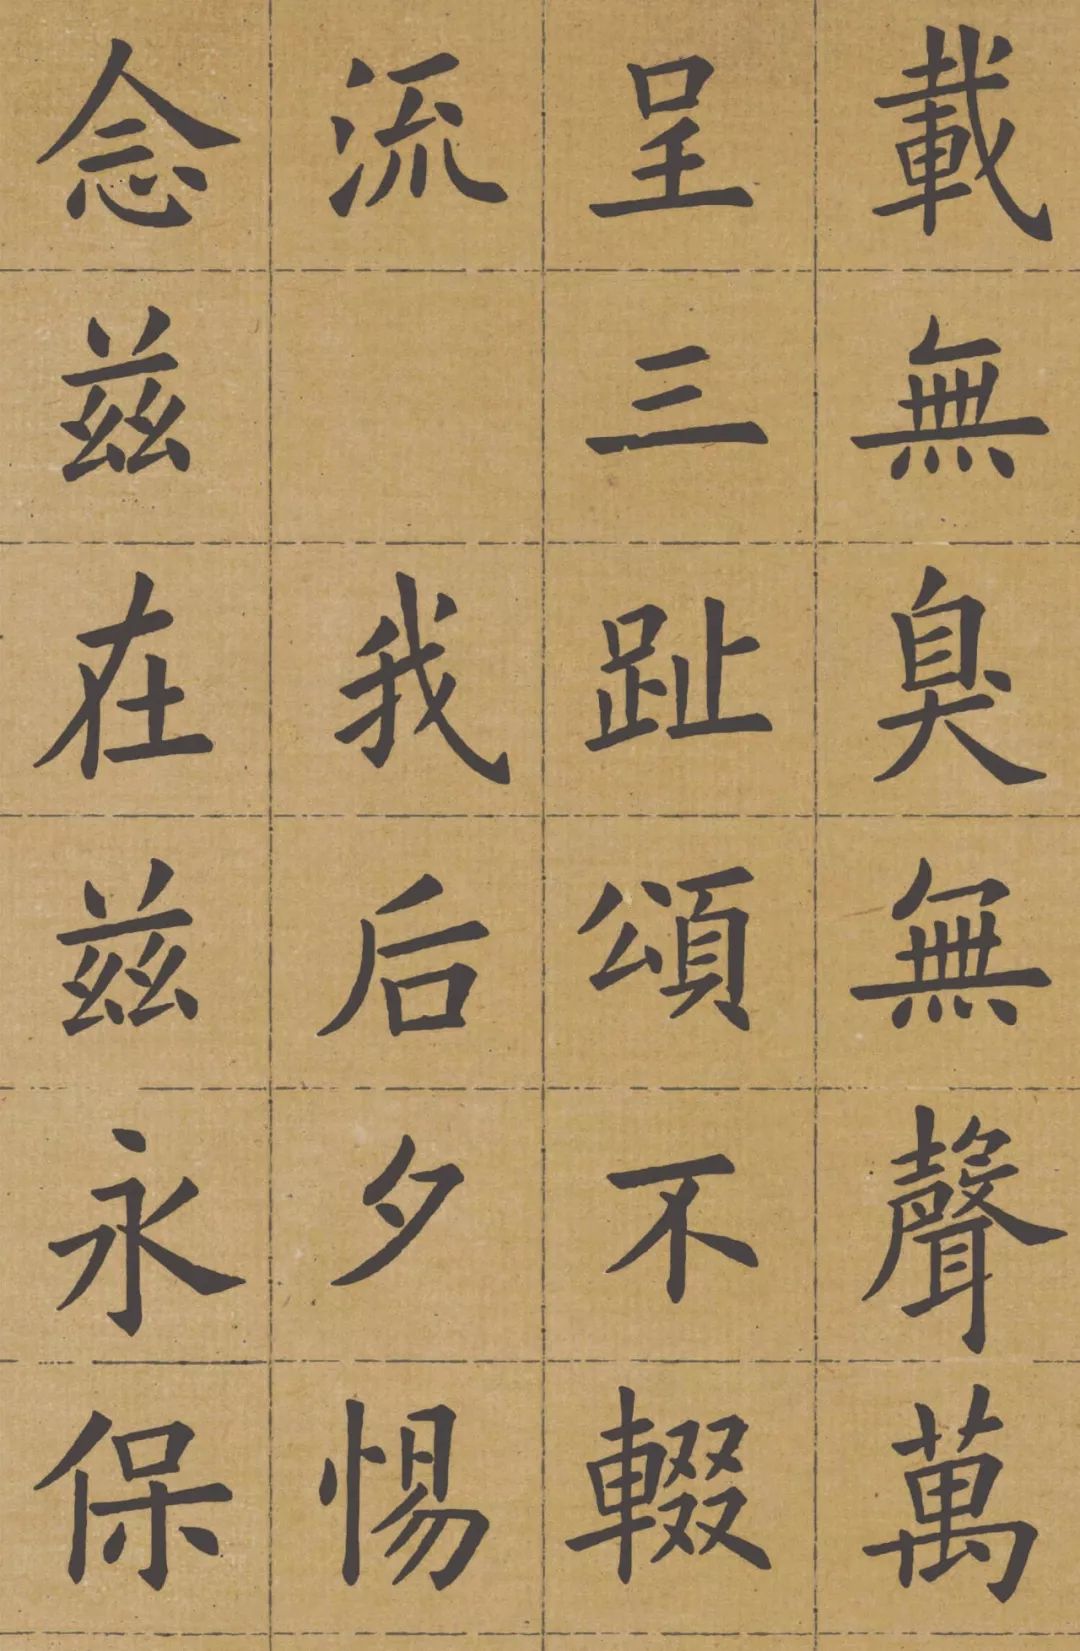 載無臭無聲萬
呈三趾頌不輟
流 我后夕惕
念茲在茲永保